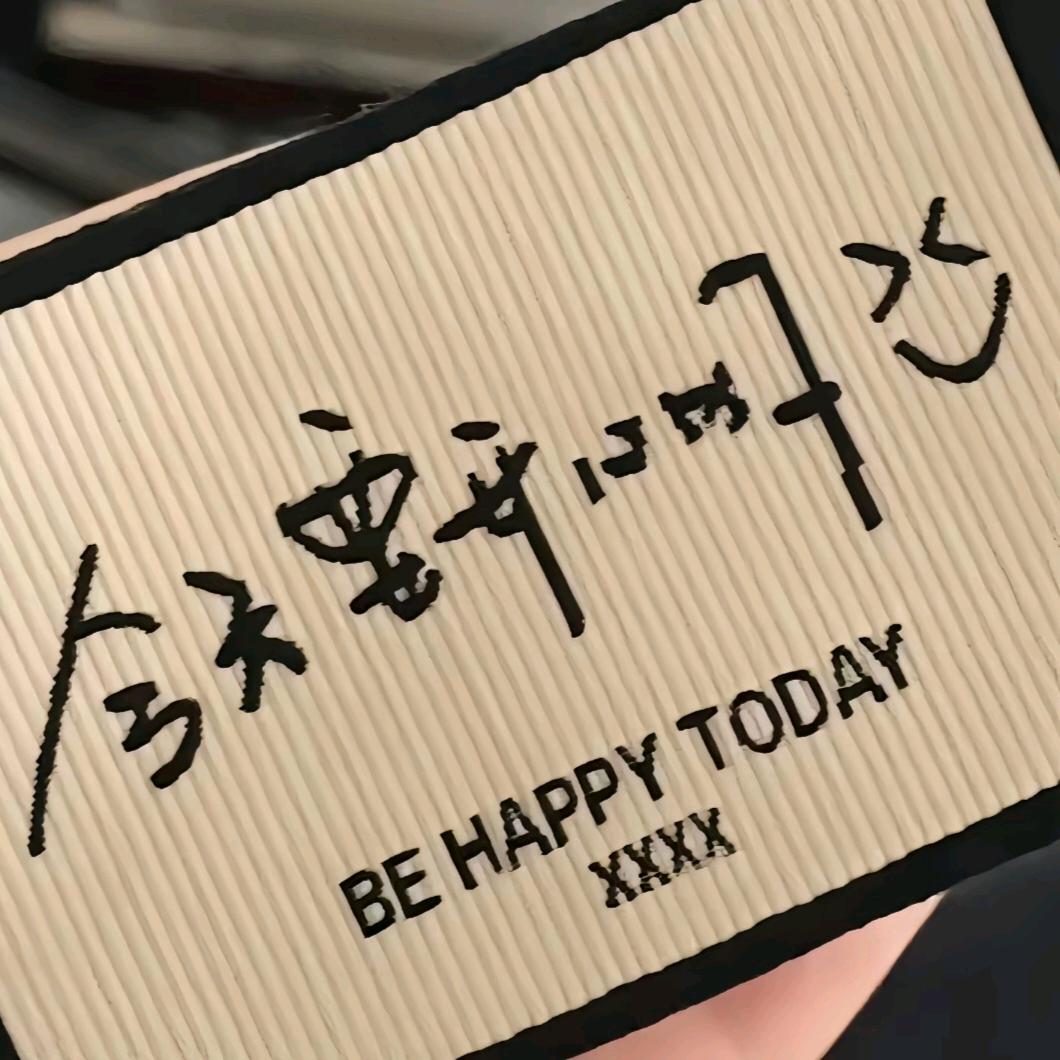 今天要开心呀
BE HAPPY TODAY
XXXX